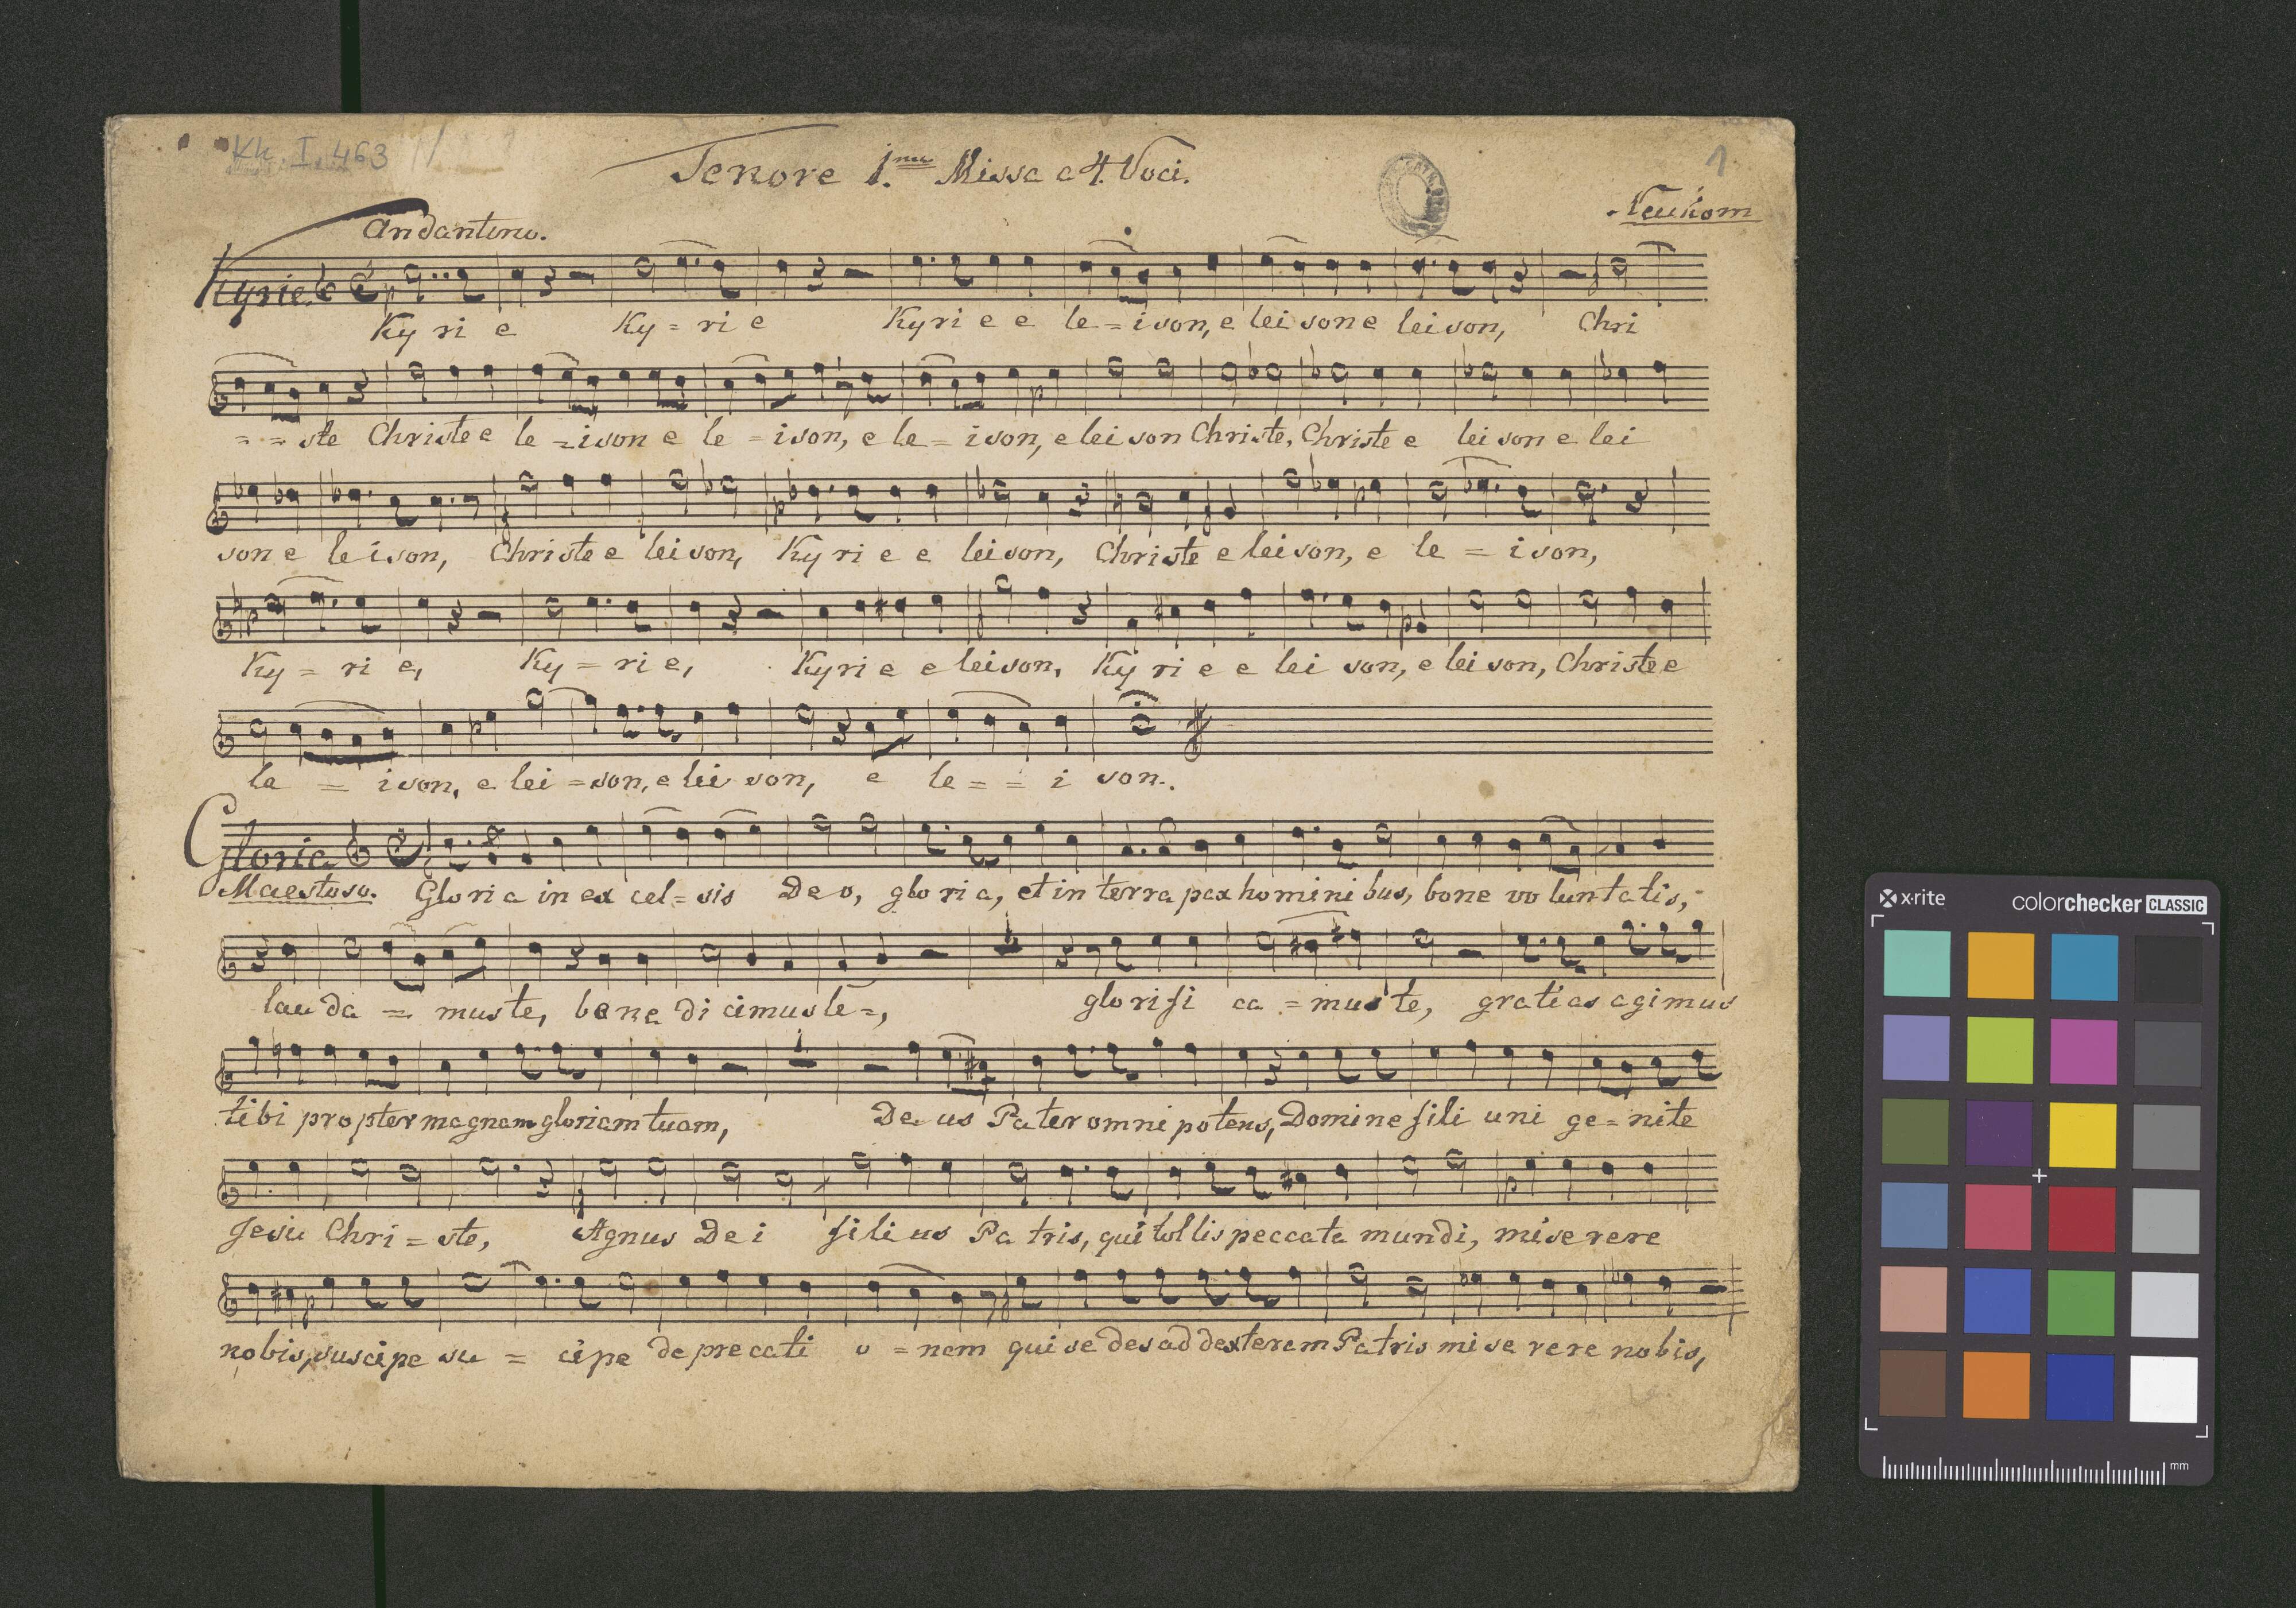 Kh. I. 463
1
Tenore 1.mo Missa a 4. Voci.
Neukom
Andantino.
Kyrie.
Ky ri e Ky = ri e Kyri e e le = ison, e lei son e leison, Chri
= = ste Christe e le = ison e le = ison, e le = ison, e lei son Christe, Christe e lei son e lei
son e leison, Christe e leison, Ky ri e e leison, Christe e leison, e le = ison,
Ky = ri e, Ky = ri e, Kyri e e leison, Ky ri e e lei son, e lei son, Christe e
le = ison, e lei = son, e lei son, e le = = i son.
Gloria
Maestoso. Gloria in ex cel = sis Deo, gloria, et in terra pax homini bus, bone vo luntatis,
lau da = muste, bene di cimus te =, glorifi ca = muste, gratias agimus
tibi propter magnam gloriam tuam, De us Pater omni potens, Domine fili uni ge = nite
Jesu Chri = ste, Agnus Dei filius Pa tris, qui tollis peccata mundi, miserere
nobis, suscipe su = cipe de precati o = nem qui se des ad dexteram Patris mi se rere nobis,
x·rite
colorchecker CLASSIC
mm